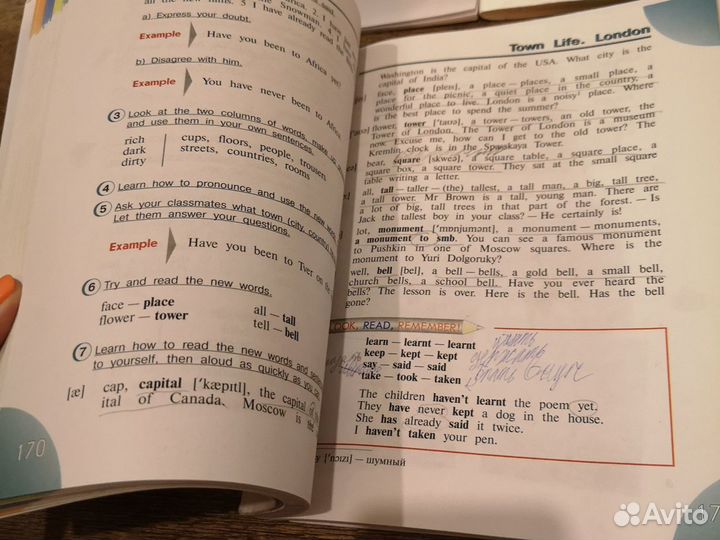 the Snowman
all the new films. 5 I have already read the
a) Express your doubt.
Example Have you been to Africa yet?
b) Disagree with him.
Example You have never been to Africa
3 Look at the two columns of words, make up
and use them in your own sentences.
rich cups, floors, people, trousers
dark streets, countries, rooms
dirty
4 Learn how to pronounce and use the new
5 Ask your classmates what town (city, country)
Let them answer your questions.
Example Have you been to Tver on the
6 Try and read the new words.
face — place all — tall
flower — tower tell — bell
7 Learn how to read the new words and
to yourself, then aloud as quickly as you can
[æ] cap, capital ['kæpıtl], the capital of
ital of Canada. Moscow is the
170
Town Life. London
Washington is the capital of the USA. What city is the
capital of India?
face, place [pleıs], a place — places, a small place, a
place for the picnic, a quiet place in the country, a
wonderful place to live. London is a noisy¹ place. Where
is the best place to spend the summer?
flower, tower ['tauə], a tower — towers, an old tower, the
Tower of London. The Tower of London is a museum
now. Excuse me, how can I get to the old tower? The
Kremlin clock is in the Spasskaya Tower.
bear, square [skweə], a square table, a square place, a
square box, a square tower. They sat at the small square
table writing a letter.
all, tall — taller — (the) tallest, a tall man, a big, tall tree,
a tall tower. Mr Brown is a tall, young man. There are
a lot of big, tall trees in that part of the forest. — Is
Jack the tallest boy in your class? — He certainly is!
lot, monument ['mɒnjumənt], a monument — monuments,
a monument to smb. You can see a famous monument
to Pushkin in one of Moscow squares. Where is the
monument to Yuri Dolgoruky?
well, bell [bel], a bell — bells, a gold bell, a small bell,
church bells, a school bell. Have you ever heard the
bells? The lesson is over. Here is the bell. Has the bell
gone?
LOOK, READ, REMEMBER!
learn — learnt — learnt
keep — kept — kept держать
say — said — said
take — took — taken брать
The children haven't learnt the poem yet.
They have never kept a dog in the house.
She has already said it twice.
I haven't taken your pen.
['nɔızı] — шумный
Avito